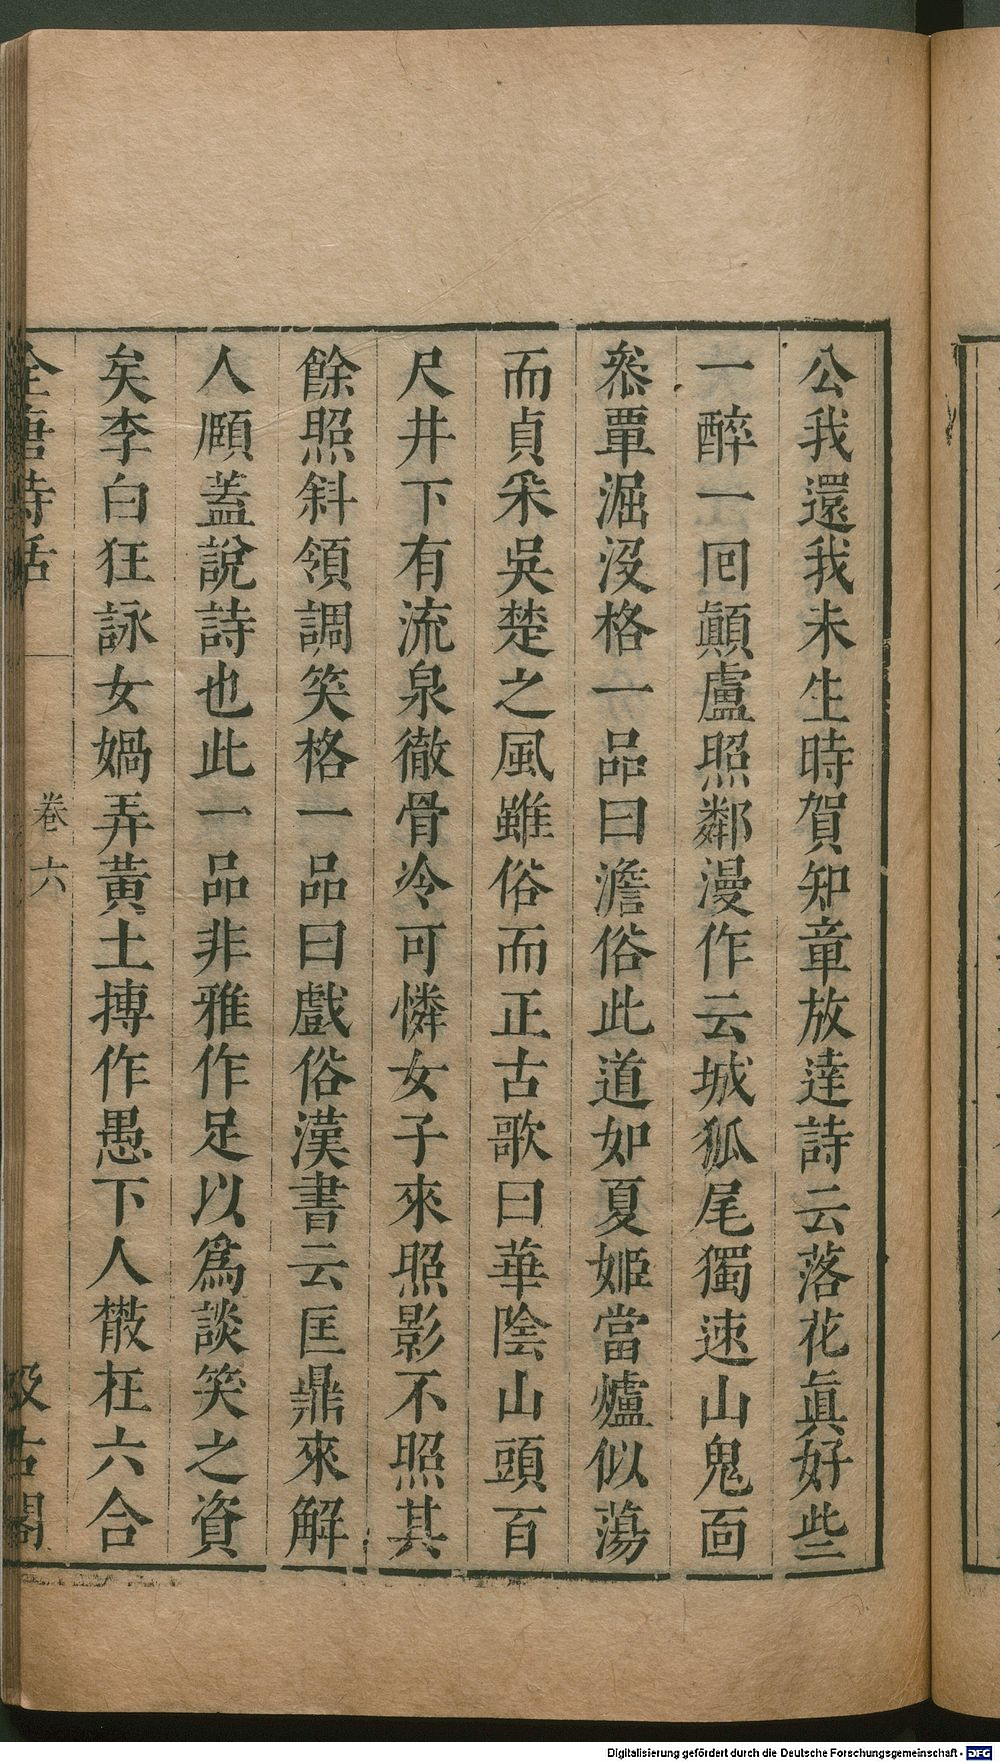 公我還我未生時賀知章放達詩云落花眞好些
一醉一回顛盧照鄰漫作云城狐尾獨速山鬼面
叅覃淈沒格一品曰澹俗此道如夏姬當爐似蕩
而貞采吳楚之風雖俗而正古歌曰華陰山頭百
尺井下有流泉徹骨冷可憐女子來照影不照其
餘照斜領調笑格一品曰戲俗漢書云匡鼎來解
人頤蓋說詩也此一品非雅作足以爲談笑之資
矣李白狂詠女媧弄黃土摶作愚下人散在六合
全唐詩話 卷六 汲古閣
Digitalisierung gefördert durch die Deutsche Forschungsgemeinschaft - DFG